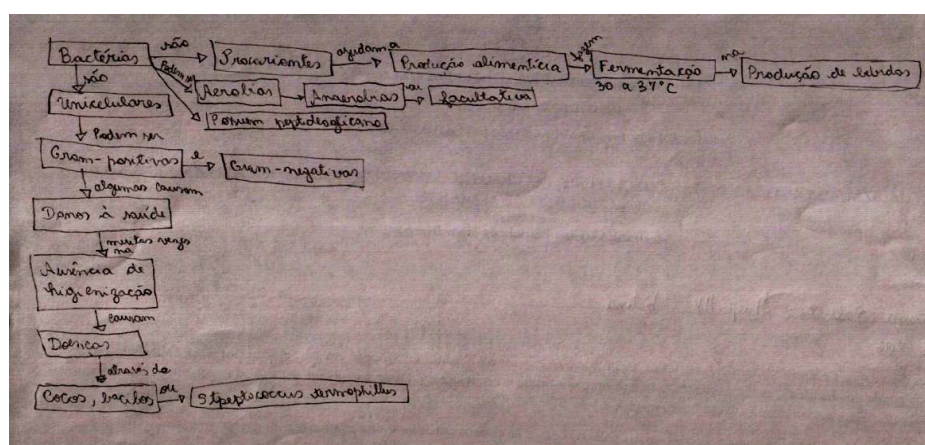 Bactérias são Procariontes ajudam a Produção alimentícia fazem Fermentação na Produção de bebidas
30 a 37°C
são Podem ser Aerobias Anaerobias ou facultativa
Unicelulares Possuem peptideoglicano
Podem ser
Gram-positivas e Gram-negativas
algumas causam
Danos à saúde
muitas vezes
na
Ausência de
higienização
causam
Doenças
através de
Cocos, bacilos ou Streptococcus termophillus